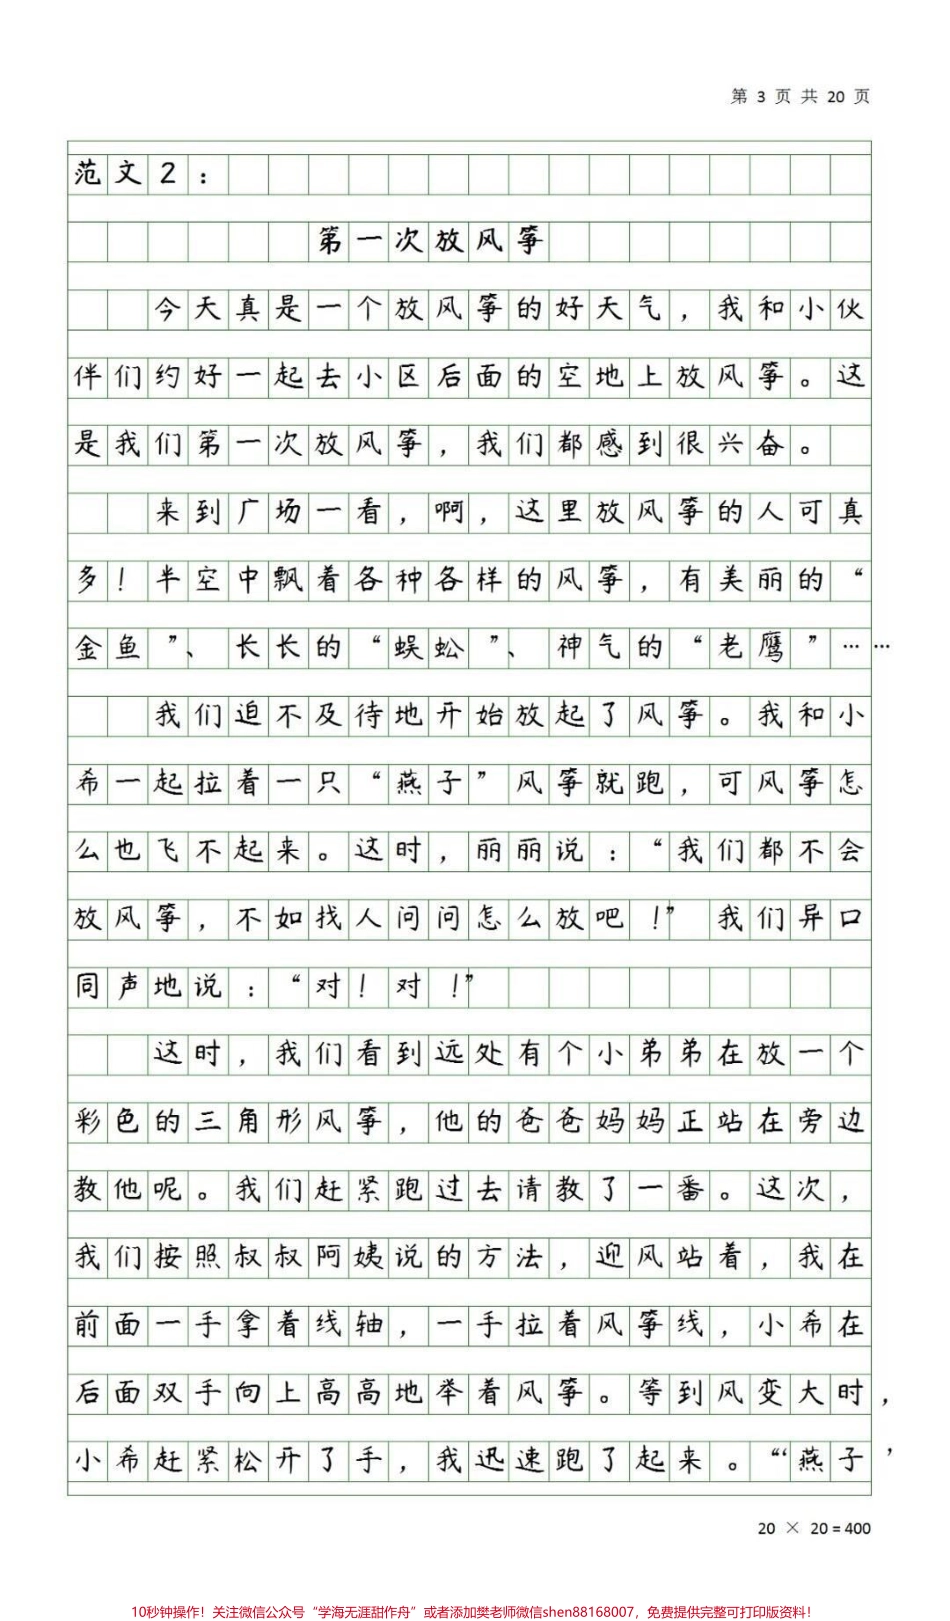 第 3 页 共 20 页
范文2：
第一次放风筝
今天真是一个放风筝的好天气，我和小伙
伴们约好一起去小区后面的空地上放风筝。这
是我们第一次放风筝，我们都感到很兴奋。
来到广场一看，啊，这里放风筝的人可真
多！半空中飘着各种各样的风筝，有美丽的“
金鱼”、长长的“蜈蚣”、神气的“老鹰”……
我们迫不及待地开始放起了风筝。我和小
希一起拉着一只“燕子”风筝就跑，可风筝怎
么也飞不起来。这时，丽丽说：“我们都不会
放风筝，不如找人问问怎么放吧！”我们异口
同声地说：“对！对！”
这时，我们看到远处有个小弟弟在放一个
彩色的三角形风筝，他的爸爸妈妈正站在旁边
教他呢。我们赶紧跑过去请教了一番。这次，
我们按照叔叔阿姨说的方法，迎风站着，我在
前面一手拿着线轴，一手拉着风筝线，小希在
后面双手向上高高地举着风筝。等到风变大时，
小希赶紧松开了手，我迅速跑了起来。“‘燕子’
20 × 20 = 400
10秒钟操作！关注微信公众号“学海无涯甜作舟”或者添加樊老师微信shen88168007，免费提供完整可打印版资料！